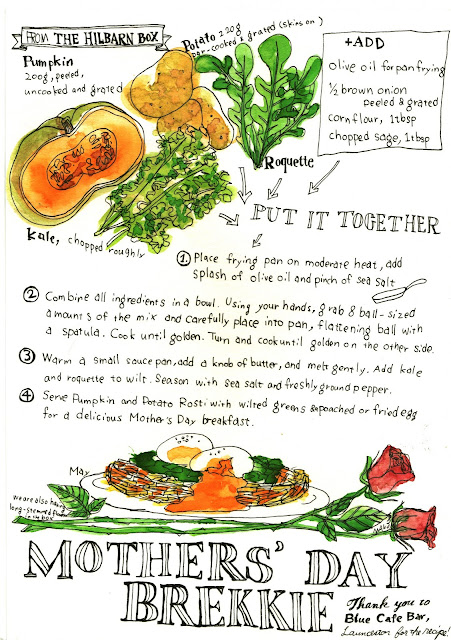 FROM THE HILBARN BOX
Pumpkin
200g, peeled,
uncooked and grated
Potato 220g
par-cooked & grated (skins on)
Roquette
Kale, chopped roughly
+ADD
Olive oil for pan frying
½ brown onion
peeled & grated
cornflour, 1tbsp
chopped sage, 1tbsp
PUT IT TOGETHER
1 Place frying pan on moderate heat, add
splash of olive oil and pinch of sea salt
2 Combine all ingredients in a bowl. Using your hands, grab 8 ball-sized
amounts of the mix and carefully place into pan, flattening ball with
a spatula. Cook until golden. Turn and cook until golden on the other side.
3 Warm a small saucepan, add a knob of butter, and melt gently. Add kale
and roquette to wilt. Season with sea salt and freshly ground pepper.
4 Serve Pumpkin and Potato Rosti with wilted greens & poached or fried egg
for a delicious Mother's Day breakfast.
May
we are also having
long-stemmed
in the box
MOTHERS' DAY
BREKKIE
Thank you to
Blue Cafe Bar,
Launceston for the recipe!